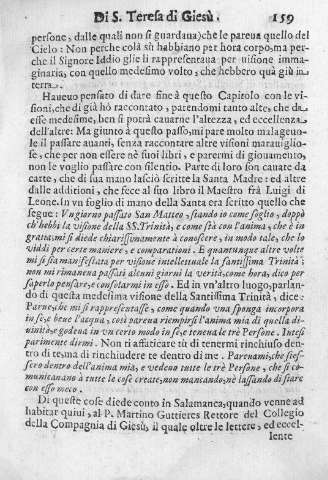 Di S. Teresa di Giesù. 159
persone, dalle quali non si guardaua) che le pareua quello del
Cielo: Non perche colà sù habbiano per hora corpo, ma per-
che il Signore Iddio glie li rappresentaua per uisione imma-
ginaria, con quello medesimo volto, che hebbero quà giù in
terra.
Haueuo pensato di dare fine à questo Capitolo con le vi-
sioni, che di già hò raccontato, parendomi tanto alte, che da
esse medesime, ben si potrà cauarne l'altezza, ed eccellenza
dell'altre: Ma giunto à questo passo, mi pare molto malageuo-
le il passare auanti, senza raccontare altre visioni marauiglio-
se, che per non essere nè suoi libri, e parermi di giouamento,
non le voglio passare con silentio. Parte di loro son cauate da
carte, che di sua mano lasciò scritte la Santa Madre: ed altre
dalle additioni, che fece al suo libro il Maestro frà Luigi di
Leone. In vn foglio di mano della Santa era scritto quello che
segue: Vn giorno passato San Matteo, stando io come soglio, doppò
c'hebbi la visione della SS. Trinità, e come stà con l'anima, che è in
gratia; mi si diede chiarissimamente à conoscere, in modo tale, che lo
viddi per certe maniere, e comparationi. E quantunque altre volte
mi si sia manifestata per visione intellettuale la santissima Trinità;
non mi rimaneua passati alcuni giorni la verità, come hora, dico per
saperlo pensare, e consolarmi in esso. Ed in vn'altro luogo, parlan-
do di questa medesima visione della Santissima Trinità, dice:
Parue, che mi si rappresentasse, come quando vna sponga incorpora
in se, e beue l'acqua, così pareua riempirsi l'anima mia di quella di-
uinità, e godeua in vn certo modo in se, e teneua le trè Persone. Intesi
parimente dirmi. Non ti affaticare tù di tenermi rinchiuso den-
tro di te, ma di rinchiudere te dentro di me. Pareuami, che stes-
sero dentro dell'anima mia, e vedeuo tutte le trè Persone, che si co-
municauano à tutte le cose create, non mancando, nè lassando di stare
con esso meco.
Di queste cose diede conto in Salamanca, quando venne ad
habitar quiui, al P. Martino Guttieres Rettore del Collegio
della Compagnia di Giesù, il quale oltre le lettere, ed eccel-
lente